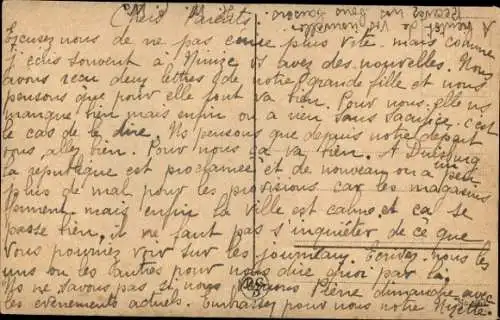 Chers Parents
Excusez nous de ne pas écrire plus vite mais comme
j'écris souvent à vs avez des nouvelles. Nous
avons reçu deux lettres de notre grande fille et nous
pensons que pour elle tout va bien. Pour nous elle ns
manque bien mais enfin on a rien sans sacrifice c'est
le cas de le dire. Ns pensons que depuis notre départ
vous allez bien. Pour nous ça va bien. A Duisburg
la république est proclamée et de nouveau on a un peu
plus de mal pour les provisions car les magasins
ferment mais enfin la ville est calme et ça se
passe bien, il ne faut pas s'inquiéter de ce que
vous pourriez voir sur les journaux. Ecrivez nous les
uns ou les autres pour nous dire quoi par là.
Ns ne savons pas si nous dimanche avec
les évènements actuels. Embrassez pour nous notre
A bientôt de vos nouvelles
Recevez nos bons baisers